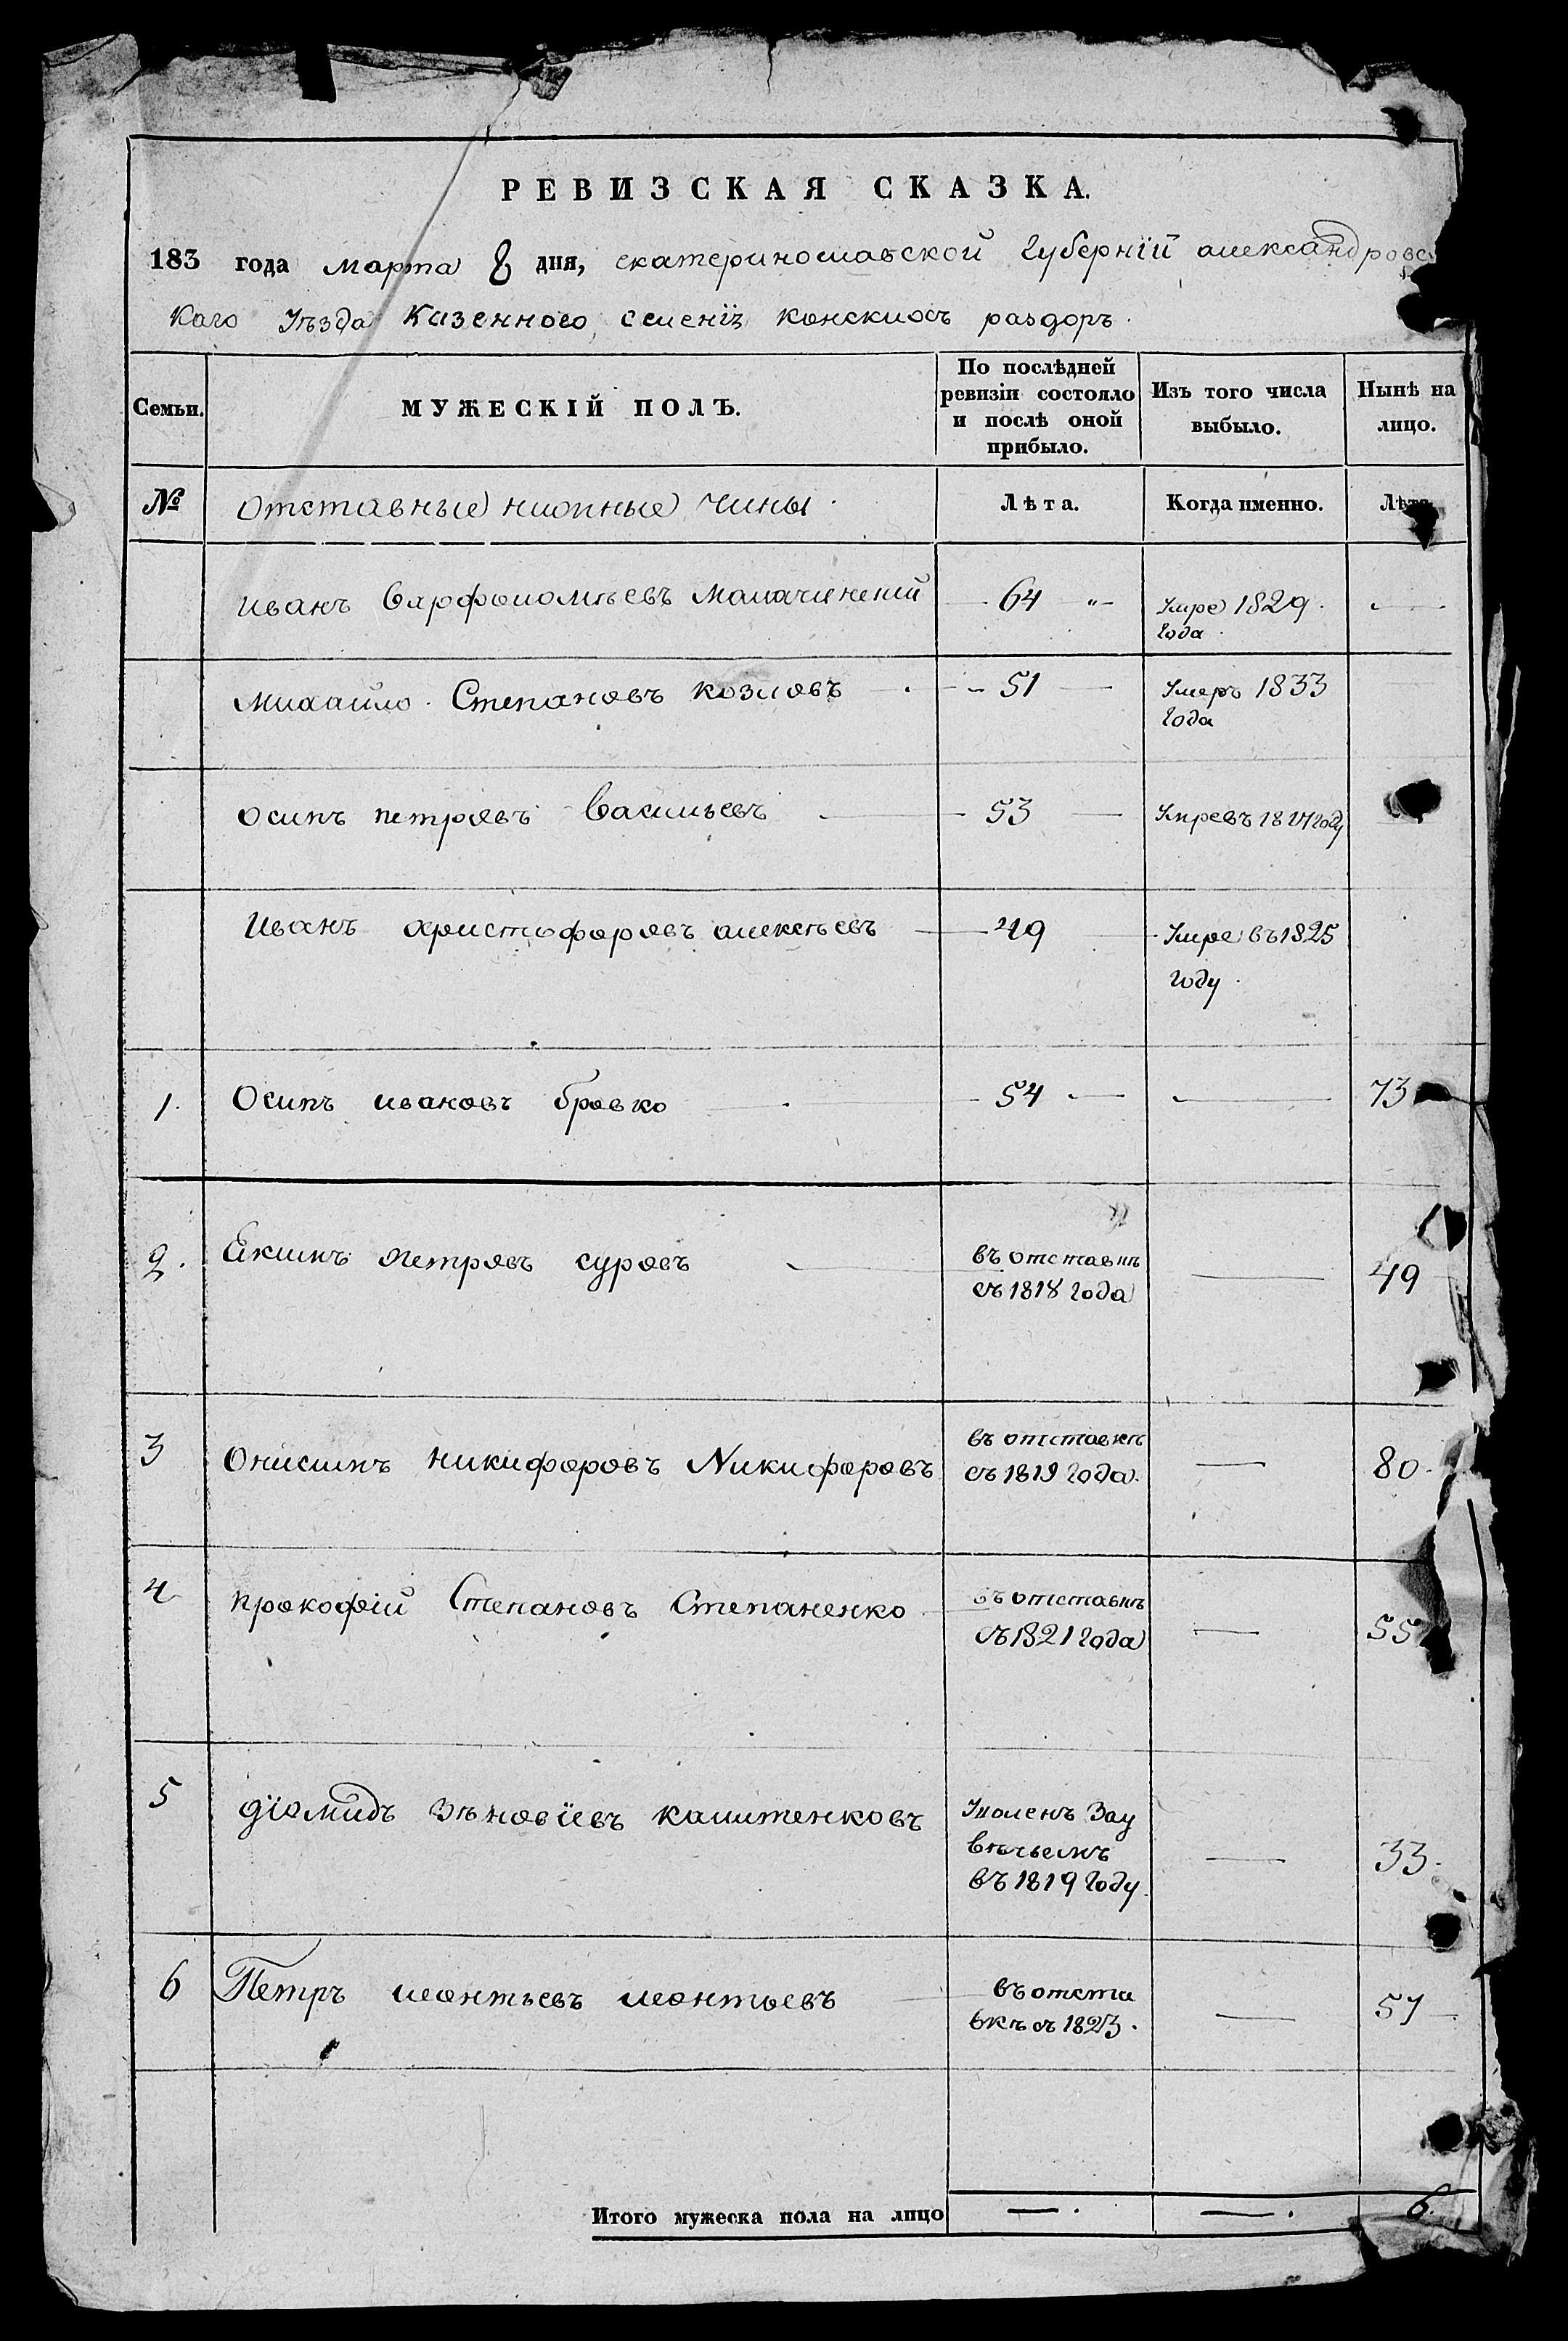 РЕВИЗСКАЯ СКАЗКА.
183 года марта 8 дня, екатеринославской Губерніи александровс
каго Уѣзда Казенного селенія конскихъ раздоръ.
Семьи.
МУЖЕСКІЙ ПОЛЪ.
По послѣдней
ревизіи состояло
и послѣ оной
прибыло.
Изъ того числа
выбыло.
Нынѣ на
лицо.
№ отставные нижные Чины. Лѣта. Когда именно. Лѣта
иванъ Варфоломѣевъ 64 " умре 1829.
года.
Михайло Степановъ козловъ 51 умеръ 1833
года
осипъ петровъ Васильевъ 53 въ году
иванъ христофоровъ алексѣевъ 49 умре въ 1825
году.
1. Осипъ ивановъ бровко 54 73
2. петровъ суровъ въ отставкѣ
съ 1818 года 49
3 Онисимъ никифоровъ Никифоровъ въ отставкѣ
съ 1819 года. 80.
4 прокофій Степановъ Степаненко въ отставкѣ
съ 1821 года 55
5 діомидъ зѣновіевъ калитенковъ Уволенъ Зау
вѣчьемъ
въ 1819 году. 33.
6 Петръ леонтьевъ леонтьевъ въ отста
вкѣ съ 1823. 57
Итого мужеска пола на лицо 6.